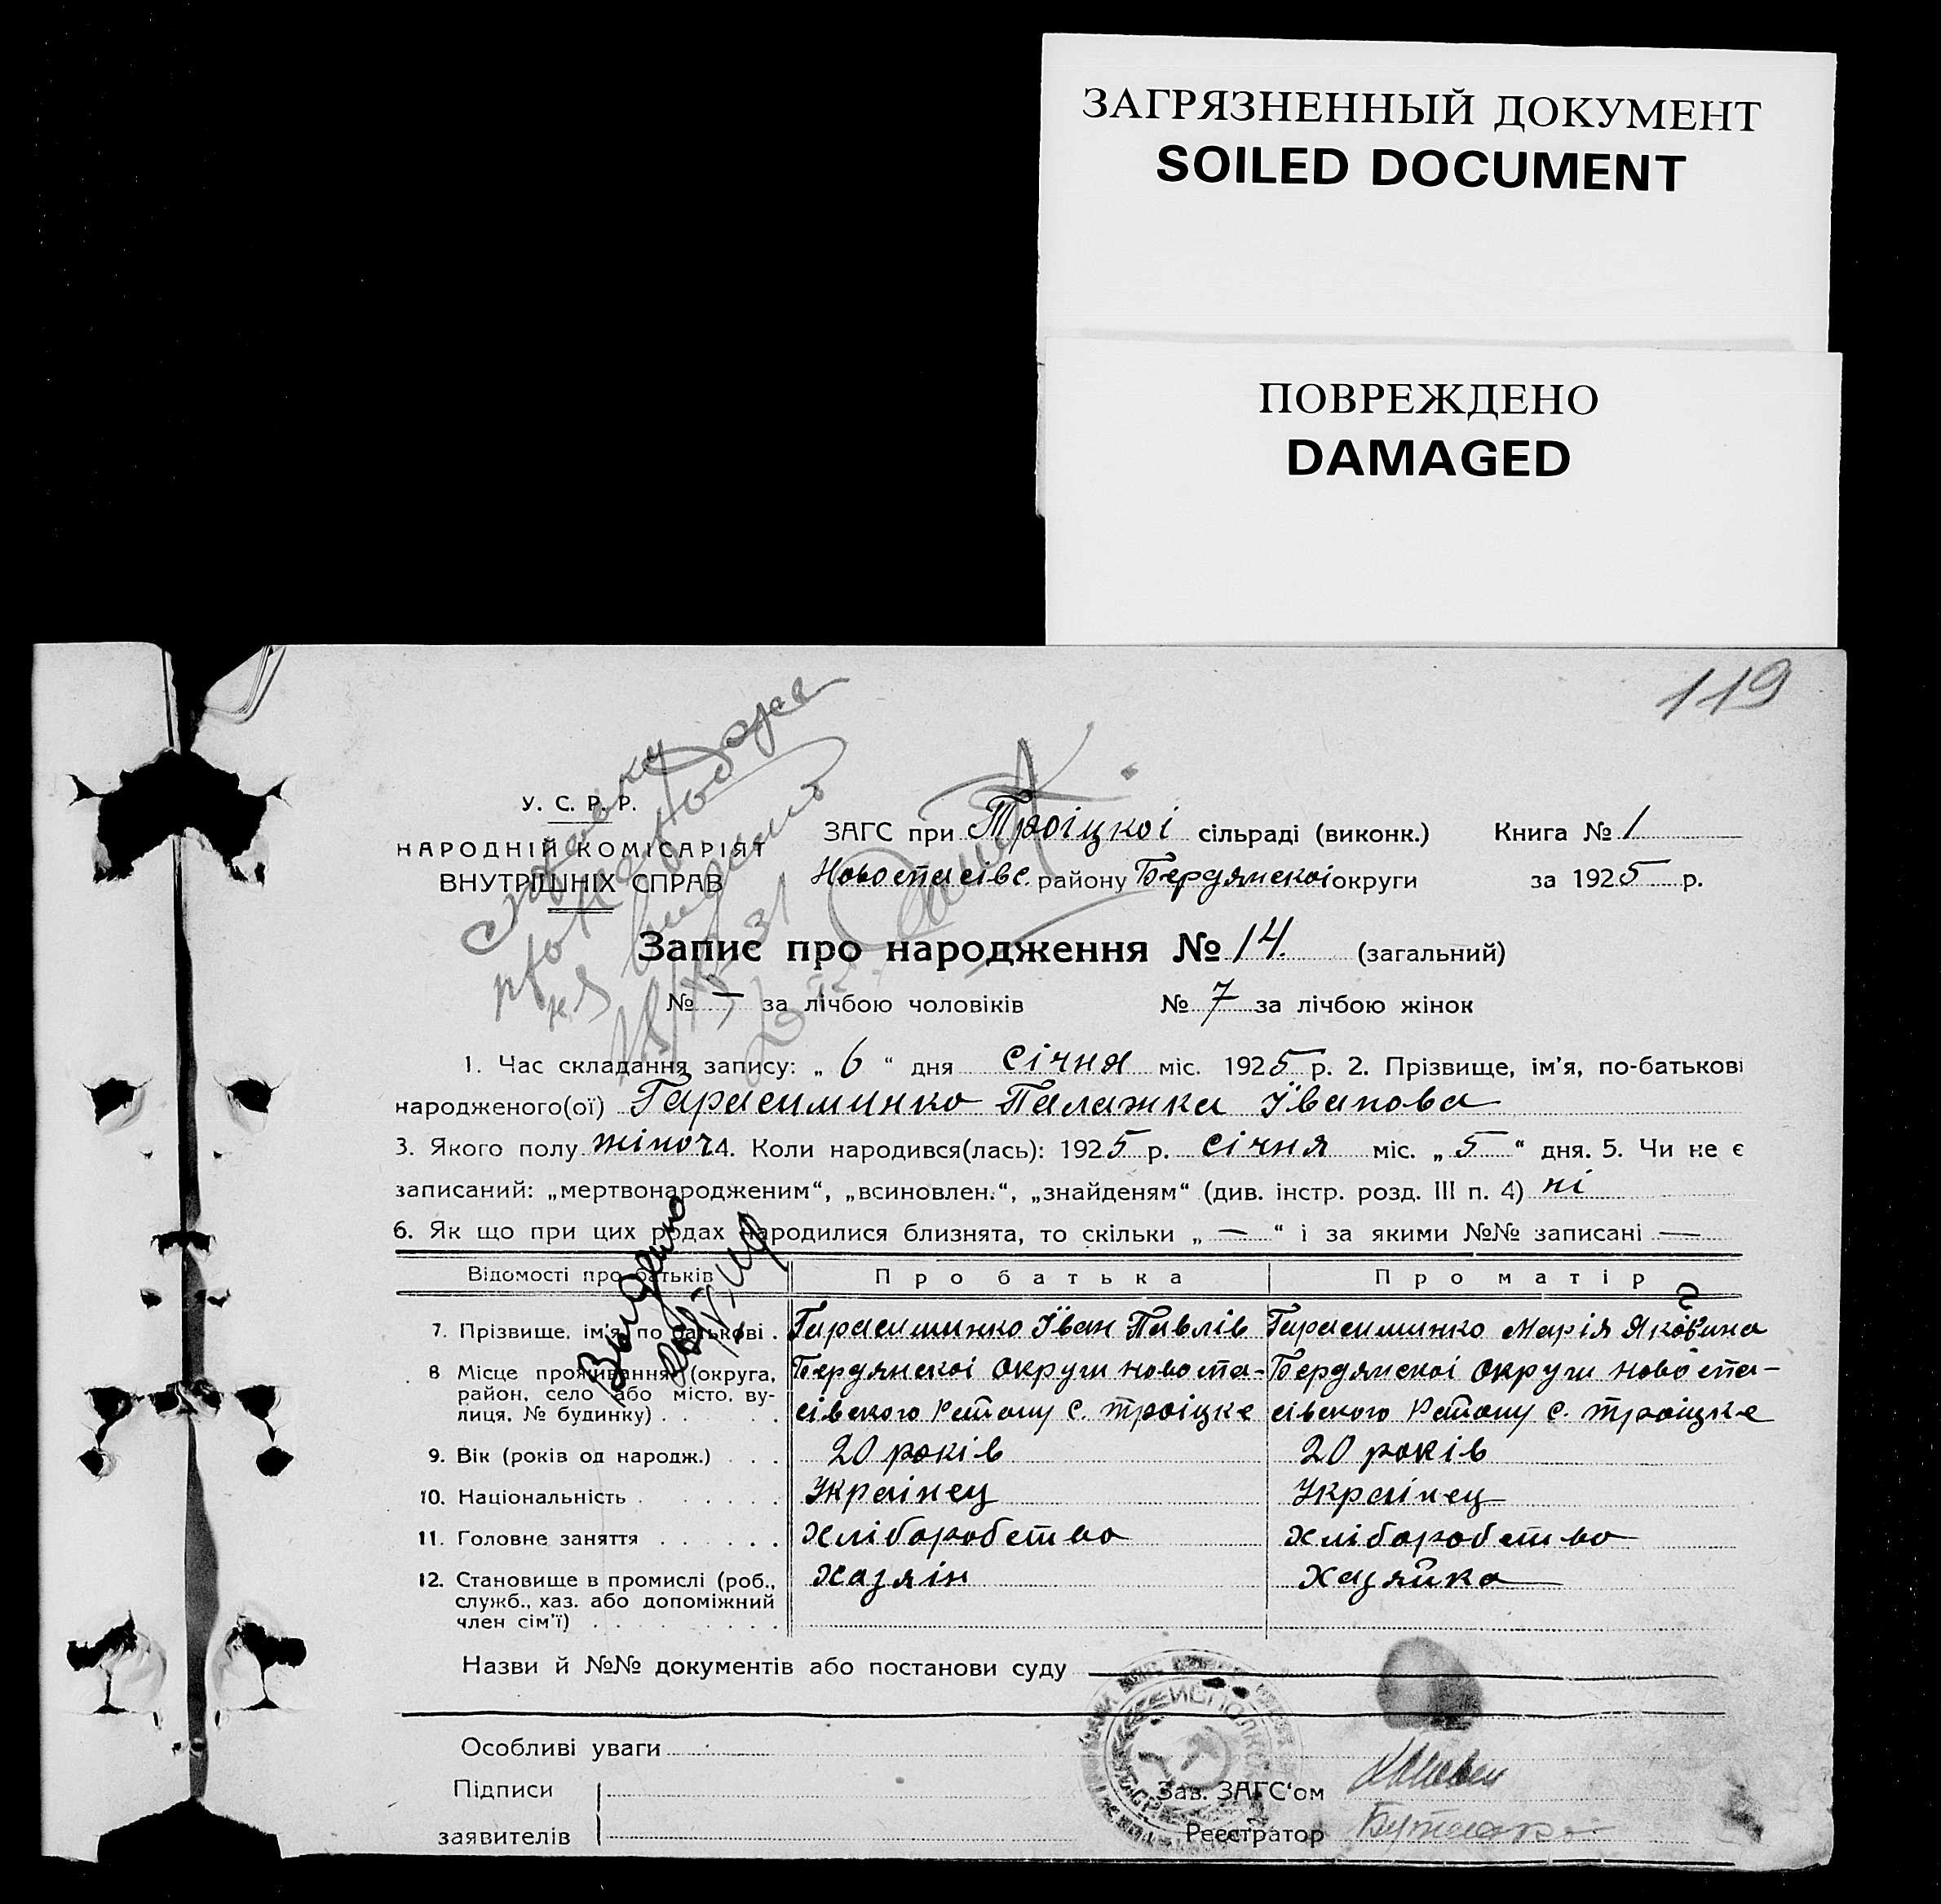 ЗАГРЯЗНЕННЫЙ ДОКУМЕНТ
SOILED DOCUMENT
ПОВРЕЖДЕНО
DAMAGED
119
У. С. Р. Р.
НАРОДНІЙ КОМІСАРІЯТ
ВНУТРІШНІХ СПРАВ
ЗАГС при Троіцкоі сільраді (виконк.) Книга № 1
Новоспасівс. району Бердянскоі округи за 1925 р.
Запис про народження № 14. (загальний)
№ — за лічбою чоловіків № 7 за лічбою жінок
1. Час складання запису: „ 6 “ дня січня міс. 1925 р. 2. Прізвище, ім'я, по-батькові
народженого(ої) Гарасиминко Палажка Івапова
3. Якого полу жіноч. 4. Коли народився(лась): 1925 р. січня міс. „ 5 “ дня. 5. Чи не є
записаний: „мертвонародженим“, „всиновлен.“, „знайденям“ (див. інстр. розд. III п. 4) ні
6. Як що при цих родах народилися близнята, то скільки „ — “ і за якими №№ записані —
Відомості про батьків Про батька Про матір
7. Прізвище, ім'я, по батькові . Гарасиминко Іван Павлів Гарасиминко Марія Яковина
8 Місце проживання (округа, Бердянскоі округи новоспа- Бердянскоі округи новоспа-
район, село або місто, ву-
лиця, № будинку) . . . сівского Району с. Троіцке сівского Району с. Троіцке
9. Вік (років од народж.) . . . 20 років 20 років
10. Національність . . . . . . Украінец Украінец
11. Головне заняття . . . . . . Хліборобство Хліборобство
12. Становище в промислі (роб., Хазяін Хазяйка
служб., хаз. або допоміжний
член сім'ї) . . . . . . . . .
Назви й №№ документів або постанови суду
Особливі уваги
Підписи
заявителів
Зав. ЗАГС‘ом
Реєстратор